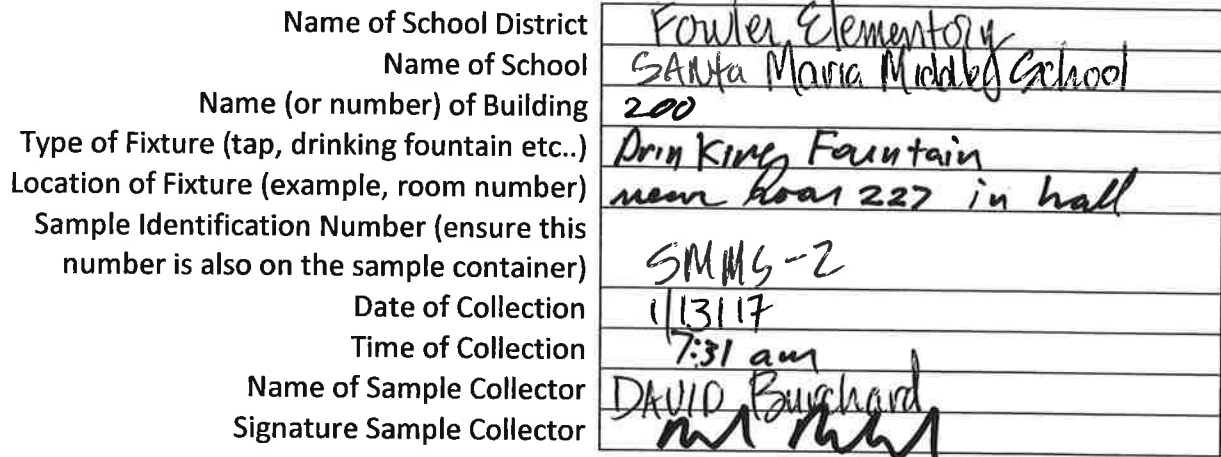 Name of School District Fowler Elementory
Name of School SANta Maria Middle School
Name (or number) of Building 200
Type of Fixture (tap, drinking fountain etc..) Drinking Fountain
Location of Fixture (example, room number) near Room 227 in hall
Sample Identification Number (ensure this
number is also on the sample container) SMMS-2
Date of Collection 1/13/17
Time of Collection 7:31 am
Name of Sample Collector DAVID Burchard
Signature Sample Collector